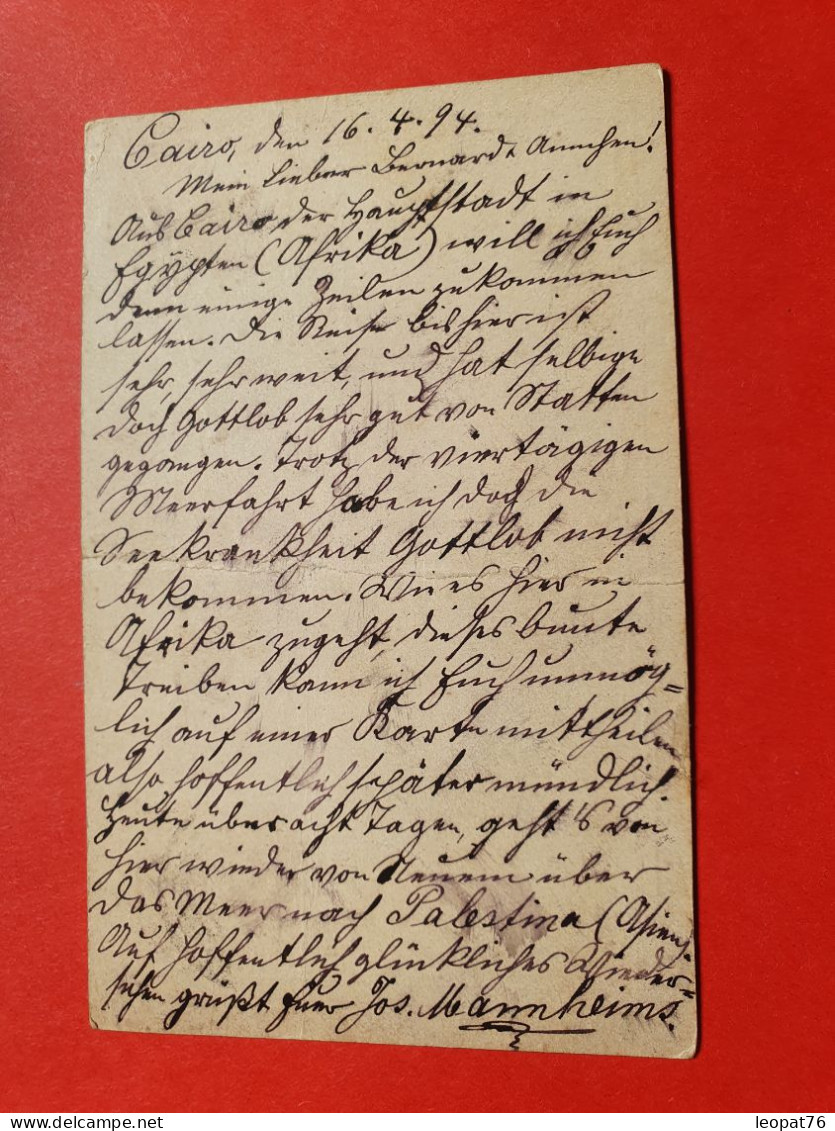 Cairo, den 16.4.94.
Mein lieber Bernard & Annchen!
Aus Cairo der Hauptstadt in
Egypten (Afrika) will ich Euch
denn einige Zeilen zukommen
lassen. Die Reise bis hier ist
sehr, sehr weit, und hat selbige
doch Gottlob sehr gut von Statten
gegangen. Trotz der viertägigen
Meerfahrt habe ich doch die
Seekrankheit Gottlob nicht
bekommen. Wie es hier in
Afrika zugeht, dieses bunte
Treiben kann ich Euch unmög=
lich auf einer Karte mittheilen
also hoffentlich später mündlich.
Heute über acht Tagen, geht's von
hier wieder von Neuem über
das Meer nach Palestina (Asien).
Auf hoffentlich glückliches Wieder=
sehen grüßt Euer Jos. Mannheims.
leopat76